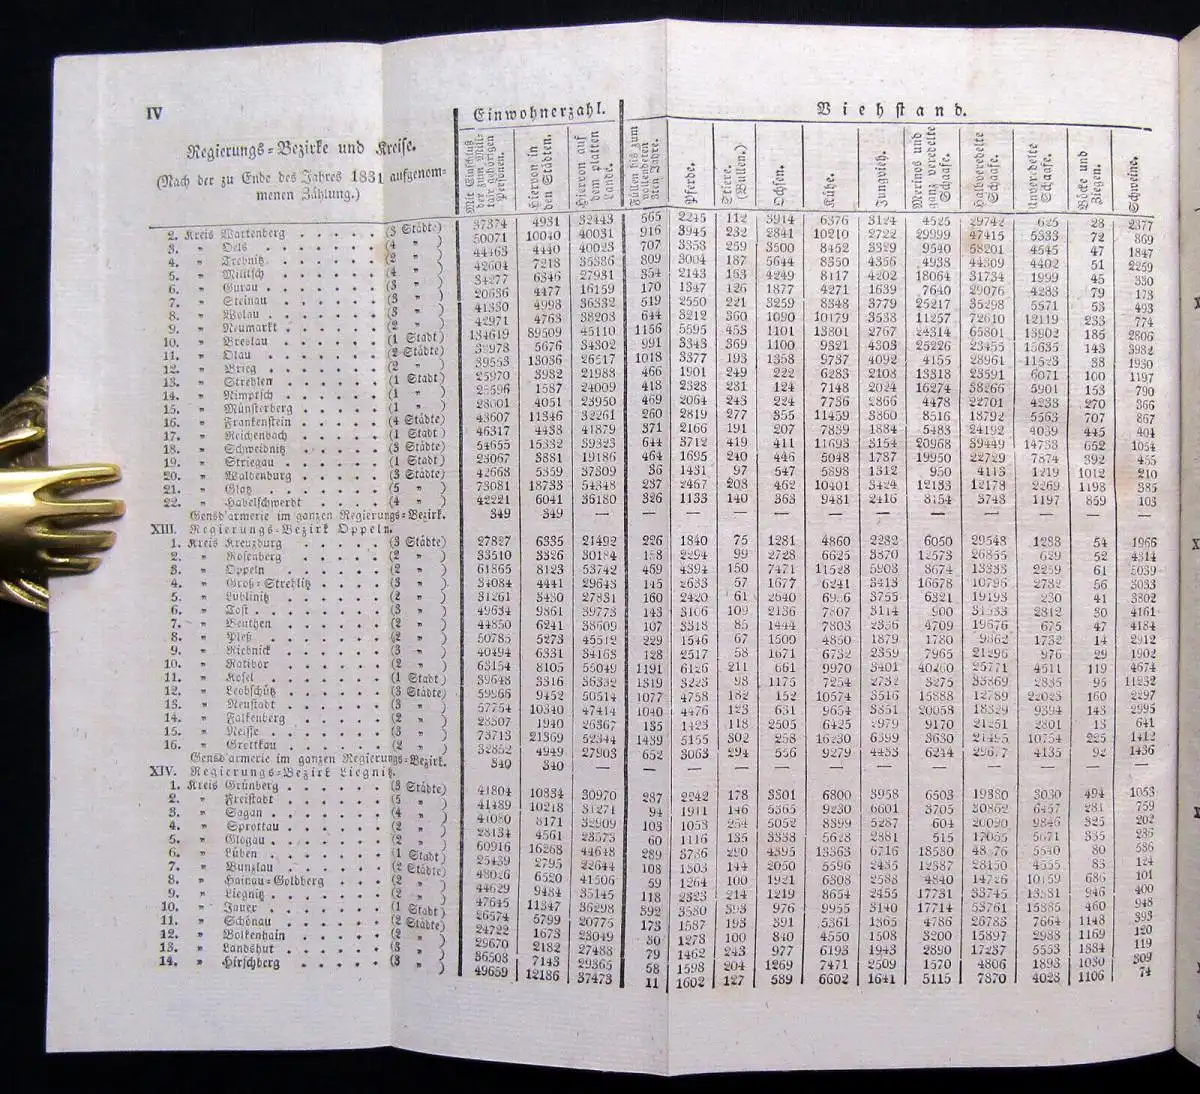 IV
Einwohnerzahl. Viehstand.
Regierungs=Bezirke und Kreise.
(Nach der zu Ende des Jahres 1831 aufgenom=
menen Zählung.)
Mit Einschluß der zum Militair gehörigen Personen.
Hiervon in den Städten.
Hiervon auf dem platten Lande.
Füllen bis zum vollendeten 3ten Jahre.
Pferde.
Stiere. (Bullen.)
Ochsen.
Kühe.
Jungvieh.
Merinos und ganz veredelte Schaafe.
Halbveredelte Schaafe.
Unveredelte Schaafe.
Böcke und Ziegen.
Schweine.
2. Kreis Wartenberg (3 Städte) 37374 4931 32443 565 2245 112 3914 6376 3124 4525 29742 625 23 2377
3. " Oels (4 " ) 50071 10040 40031 916 3945 232 2841 10210 2722 29999 47415 5333 72 869
4. " Trebnitz (2 " ) 44463 4440 40023 707 3353 259 3500 8452 3329 9540 58201 4545 47 1847
5. " Militsch (4 " ) 42604 7218 35386 809 3004 187 5644 8350 4356 4938 44309 4402 51 2259
6. " Gurau (3 " ) 34277 6346 27931 354 2143 153 4249 8117 4202 18064 31734 1999 45 330
7. " Steinau (3 " ) 20636 4477 16159 170 1347 126 1877 4271 1639 7640 29076 4283 79 173
8. " Wolau (3 " ) 41330 4998 36332 519 2550 221 3259 8348 3779 25217 35298 5571 53 493
9. " Neumarkt (2 " ) 42971 4763 38203 644 3212 360 1090 10179 3533 11257 72610 12119 233 774
10. " Breslau (1 Stadt) 134619 89509 45110 1156 5595 453 1101 13801 2767 24314 65801 13902 185 2806
11. " Olau (2 Städte) 5676 34302 991 3343 369 1100 9321 4303 25226 23455 15635 143 3982
12. " Brieg (2 " ) 39553 13036 26517 1018 3377 193 1358 9737 4092 4155 28961 11523 38 1930
13. " Strehlen (1 Stadt) 25970 3982 21988 466 1901 249 222 6283 2103 13318 23591 6071 100 1197
14. " Nimptsch (1 " ) 25596 1587 24009 418 2328 231 124 7148 2024 16274 38266 5901 153 790
15. " Münsterberg (1 " ) 28001 4051 23950 469 2064 243 224 7736 2866 4478 22701 4233 270 366
16. " Frankenstein (4 Städte) 43607 11346 32261 260 2819 277 355 11459 3860 8516 18792 5563 707 867
17. " Reichenbach (1 Stadt) 46317 4438 41879 371 2166 191 207 7839 1884 5483 24192 4039 445 404
18. " Schweidnitz (3 Städte) 54655 15332 39323 644 3712 419 411 11693 3154 20968 39449 14733 652 1054
19. " Striegau (1 Stadt) 23067 3881 19186 464 1695 240 446 5048 1787 19950 22729 7374 392 455
20. " Waldenburg (3 Städte) 42668 5359 37309 36 1431 97 547 5898 1312 950 4113 1219 1012 210
21. " Glatz (5 " ) 73081 18733 54348 237 2467 208 462 10401 3424 12133 12178 2269 1198 385
22. " Habelschwerdt (4 " ) 42221 6041 36180 326 1133 140 363 9481 2416 8154 3743 1197 859 103
Gensd'armerie im ganzen Regierungs=Bezirk. 349 349 — — — — — — — — — — — —
XIII. Regierungs=Bezirk Oppeln.
1. Kreis Kreuzburg (3 Städte) 27827 6335 21492 226 1840 75 1281 4860 2282 6050 29548 1288 54 1966
2. " Rosenberg (2 " ) 33510 3326 30184 158 2294 99 2728 6625 3370 12573 26855 629 52 4314
3. " Oppeln (2 " ) 61865 8123 53742 469 4394 150 7471 11528 5903 3674 13333 2259 61 5039
4. " Groß=Strehlitz (3 " ) 34084 4441 29643 145 2633 57 1677 6241 3413 16678 10796 2732 56 3033
5. " Lublinitz (2 " ) 31261 3430 27831 160 2420 61 2640 3755 6321 19193 230 41 3802
6. " Tost (3 " ) 49634 9861 39773 143 3106 109 2136 7807 3114 900 2812 30 4161
7. " Beuthen (2 " ) 44850 6241 38609 107 3318 85 1444 7803 2356 4709 19676 675 47 4184
8. " Pleß (2 " ) 50785 5273 45512 229 1546 67 1500 4850 1879 1780 9362 1732 14 2912
9. " Riebnick (3 " ) 40494 6331 34163 128 2517 58 1671 6732 2359 7965 21296 976 29 1902
10. " Ratibor (2 " ) 63154 8105 55049 1191 6126 211 661 9970 3401 40260 25771 4511 119 4674
11. " Kosel (1 Stadt) 39648 3316 36332 1319 3223 98 1175 7254 2732 3275 33869 2835 95 11232
12. " Leobschütz (3 Städte) 59966 9452 50514 1077 4758 182 152 10574 3516 15888 12789 22023 160 2297
13. " Neustadt (3 " ) 57754 10340 47414 1040 4476 123 631 9654 3351 20058 18329 9394 143 2995
14. " Falkenberg (2 " ) 28307 1940 26367 135 1423 118 2505 6425 2979 9170 21251 2801 13 641
15. " Neisse (3 " ) 73713 21369 52344 1439 5155 302 258 16230 6399 3630 21495 10754 225 1412
16. " Grottkau (2 " ) 32852 4949 27903 652 3063 294 556 9279 4433 6244 4135 92 1436
Gensd'armerie im ganzen Regierungs=Bezirk. 340 340 — — — — — — — — — — — —
XIV. Regierungs=Bezirk Liegnitz.
1. Kreis Grünberg (3 Städte) 41804 10834 30970 237 2242 178 3301 6800 3958 6503 19380 3030 494 1053
2. " Freistadt (5 " ) 41489 10218 31271 94 1911 146 5365 9230 6601 3705 30862 6457 281 759
3. " Sagan (4 " ) 41080 8171 32909 103 1053 254 5052 8399 5287 604 20090 9846 325 202
4. " Sprottau (2 " ) 28134 4561 23573 60 1116 135 3338 5628 2881 515 17055 5671 335 236
5. " Glogau (2 " ) 60916 16268 44648 289 3736 290 4395 13363 6716 18530 5540 80 586
6. " Lüben (1 Stadt) 25439 2795 22644 108 1503 144 2050 5596 2435 12887 28150 4555 83 124
7. " Bunzlau (2 Städte) 48026 6520 41506 59 1264 100 1921 6308 2588 4840 14726 10159 686 101
8. " Hainau=Goldberg (3 " ) 44629 9484 35145 118 2323 214 1219 8654 2455 17731 33745 946 400
9. " Liegnitz (2 " ) 47645 11347 36298 392 3580 393 976 9955 3140 17714 53761 15385 460 948
10. " Jauer (1 Stadt) 26574 5799 20775 173 1537 193 391 5361 1865 4786 26783 7664 1148 393
11. " Schönau (2 Städte) 24722 1673 23049 30 1273 100 840 4550 1508 3200 15897 2983 1169 120
12. " Bolkenhain (2 " ) 29670 2182 27488 79 1462 243 977 6193 1943 2890 17237 5553 1334 119
13. " Landshut (3 " ) 36508 7143 29365 58 1598 204 1269 7471 2509 1570 4806 1893 1030 309
14. " Hirschberg (3 " ) 49659 12186 37473 11 1602 127 589 6602 1641 5115 7870 4023 1106 74